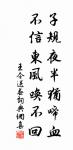 子規夜半猶啼血
不信東風喚不回
王令送春詞典網集